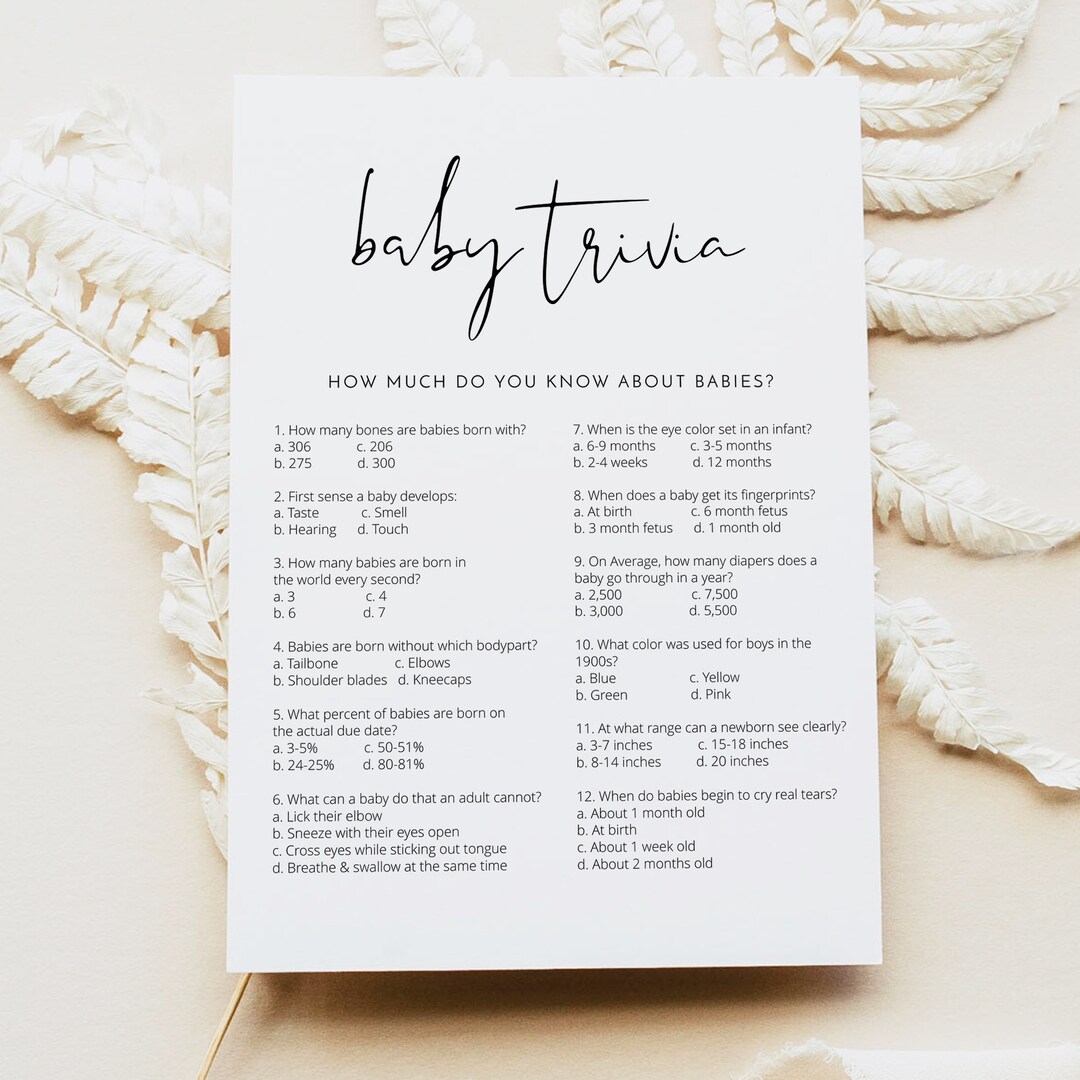 baby trivia
HOW MUCH DO YOU KNOW ABOUT BABIES?
1. How many bones are babies born with?
a. 306 c. 206
b. 275 d. 300
2. First sense a baby develops:
a. Taste c. Smell
b. Hearing d. Touch
3. How many babies are born in
the world every second?
a. 3 c. 4
b. 6 d. 7
4. Babies are born without which bodypart?
a. Tailbone c. Elbows
b. Shoulder blades d. Kneecaps
5. What percent of babies are born on
the actual due date?
a. 3-5% c. 50-51%
b. 24-25% d. 80-81%
6. What can a baby do that an adult cannot?
a. Lick their elbow
b. Sneeze with their eyes open
c. Cross eyes while sticking out tongue
d. Breathe & swallow at the same time
7. When is the eye color set in an infant?
a. 6-9 months c. 3-5 months
b. 2-4 weeks d. 12 months
8. When does a baby get its fingerprints?
a. At birth c. 6 month fetus
b. 3 month fetus d. 1 month old
9. On Average, how many diapers does a
baby go through in a year?
a. 2,500 c. 7,500
b. 3,000 d. 5,500
10. What color was used for boys in the
1900s?
a. Blue c. Yellow
b. Green d. Pink
11. At what range can a newborn see clearly?
a. 3-7 inches c. 15-18 inches
b. 8-14 inches d. 20 inches
12. When do babies begin to cry real tears?
a. About 1 month old
b. At birth
c. About 1 week old
d. About 2 months old